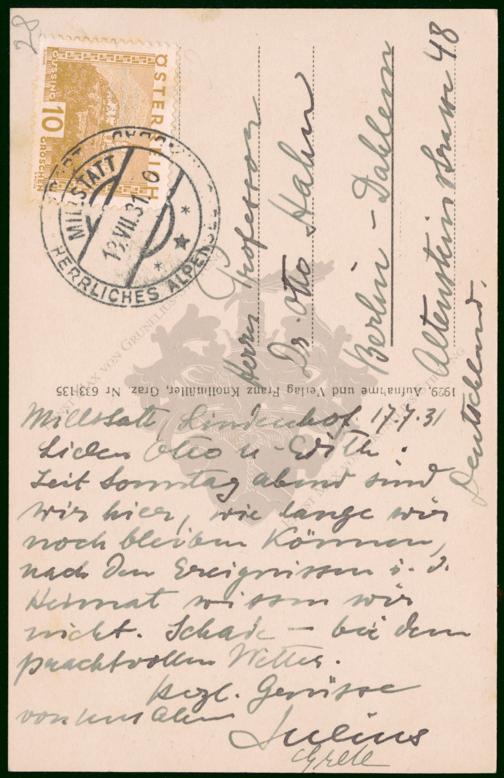 28
ÖSTERREICH
GÜSSING
10
GROSCHEN
MILLSTATT
19.VII.31
HERRLICHES ALPENSEE
Herrn Professor
Dr. Otto Hahn
Berlin - Dahlem
Altensteinstrasse 48
Deutschland.
1929, Aufnahme und Verlag Franz Knollmüller, Graz. Nr 633/135
Millstatt Lindenhof. 17.7.31
Lieben Otto u. Edith.
Seit Sonntag abend sind
wir hier, wie lange wir
noch bleiben können,
nach den Ereignissen i. d.
Heimat wissen wir
nicht. Schade – bei dem
prachtvollen Wetter.
Herzl. Grüsse
von uns allen
Julius
Grete